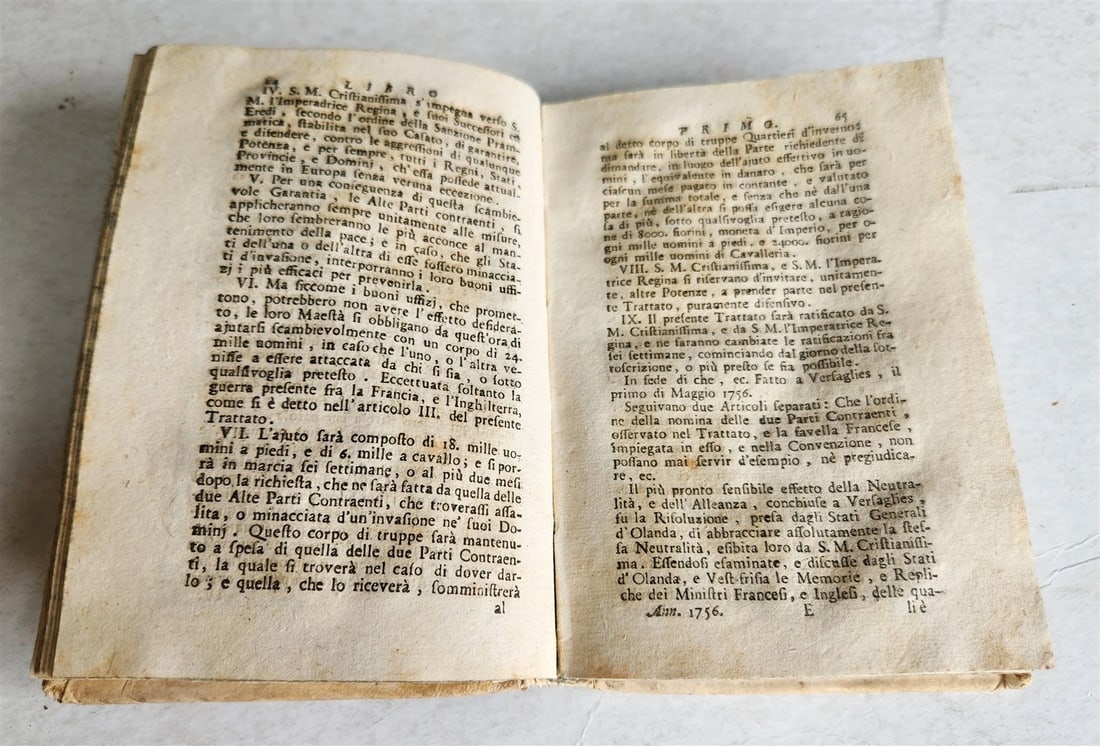 64 LIBRO
IV. S. M. Cristianissima s'impegna verso S.
M. l'Imperadrice Regina, e suoi Successori ed
Eredi, secondo l'ordine della Sanzione Pram-
matica, stabilita nel suo Casato, di garantire,
e difendere, contro le aggressioni di qualunque
Potenza, e per sempre, tutti i Regni, Stati,
Provincie, e Dominj, ch'essa possede attual-
mente in Europa senza veruna eccezione.
V. Per una conseguenza di questa scambie-
vole Garantia, le Alte Parti contraenti, si
applicheranno sempre unitamente alle misure,
che loro sembreranno le più acconce al man-
tenimento della pace; e in caso, che gli Sta-
ti dell'una o dell'altra di esse fossero minaccia-
ti d'invasione, interporranno i loro buoni uffi-
zj i più efficaci per prevenirla.
VI. Ma siccome i buoni uffizj, che promet-
tono, potrebbero non avere l'effetto desidera-
to, le loro Maestà si obbligano da quest'ora di
ajutarsi scambievolmente con un corpo di 24.
mille uomini, in caso che l'uno, o l'altra ve-
nisse a essere attaccata da chi si sia, o sotto
qualsivoglia pretesto. Eccettuata soltanto la
guerra presente fra la Francia, e l'Inghilterra,
come si è detto nell'articolo III. del presente
Trattato.
VII. L'ajuto sarà composto di 18. mille uo-
mini a piedi, e di 6. mille a cavallo; e si por-
rà in marcia sei settimane, o al più due mesi
dopo la richiesta, che ne sarà fatta da quella delle
due Alte Parti Contraenti, che troverassi assa-
lita, o minacciata d'un'invasione ne' suoi Do-
minj. Questo corpo di truppe sarà mantenu-
to a spesa di quella delle due Parti Contraen-
ti, la quale si troverà nel caso di dover dar-
lo; e quella, che lo riceverà, somministrerà
al
PRIMO. 65
al detto corpo di truppe Quartieri d'inverno:
ma sarà in libertà della Parte richiedente di
dimandare, in luogo dell'ajuto effettivo in uo-
mini, l'equivalente in danaro, che sarà per
ciascun mese pagato in contante, e valutato
per la summa totale, e senza che nè dall'una
parte, nè dell'altra si possa esigere alcuna co-
sa di più, sotto qualsivoglia pretesto, a ragio-
ne di 8000. fiorini, moneta d'Imperio, per o-
gni mille uomini a piedi, e 24000. fiorini per
ogni mille uomini di Cavalleria.
VIII. S. M. Cristianissima, e S. M. l'Impera-
trice Regina si riservano d'invitare, unitamen-
te, altre Potenze, a prender parte nel presen-
te Trattato, puramente difensivo.
IX. Il presente Trattato sarà ratificato da S.
M. Cristianissima, e da S. M. l'Imperatrice Re-
gina, e ne saranno cambiate le ratificazioni fra
sei settimane, cominciando dal giorno della sot-
toscrizione, o più presto se sia possibile.
In fede di che, ec. Fatto a Versaglies, il
primo di Maggio 1756.
Seguivano due Articoli separati: Che l'ordi-
ne della nomina delle due Parti Contraenti,
osservato nel Trattato, e la favella Francese,
impiegata in esso, e nella Convenzione, non
possano mai servir d'esempio, nè pregiudica-
re, ec.
Il più pronto sensibile effetto della Neutra-
lità, e dell'Alleanza, conchiuse a Versaglies,
fu la Risoluzione, presa dagli Stati Generali
d'Olanda, di abbracciare assolutamente la stes-
sa Neutralità, esibita loro da S. M. Cristianissi-
ma. Essendosi esaminate, e discusse dagli Stati
d'Olanda, e Vest-frisia le Memorie, e Repli-
che dei Ministri Francesi, e Inglesi, delle qua-
Ann. 1756. E li è